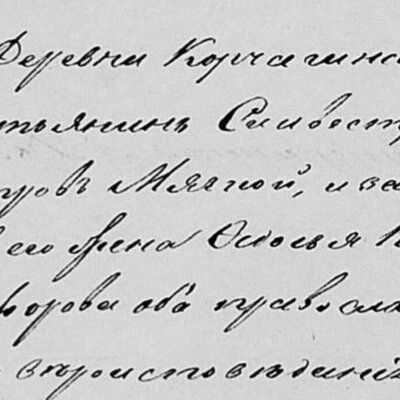 Деревни Корчагинс
стьянинъ Сильвестр
тровъ Мягкой, и за
его жена Федосья Н
форова оба правосла
вероисповѣданія